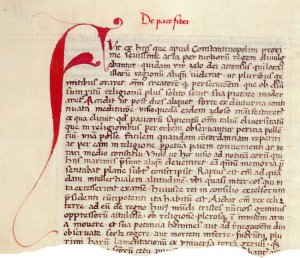 De pace fidei
Fuit ex hijs que apud Constantinopolim proxi
me sevissime acta per turcorum regem divulg
ebantur quidam vir zelo dei accensus qui loca
illarum regionum aliquando viderat ut pluribus ge
mitibus oraret omnium creatorem quod persecucionem que ob di
versum ritum religionum plus solito sevit sua pietate moder
aret Accidit ut post dies aliquot forte ex diuturna conti
nuata meditacione visio quedam eidem zeloso manifestaretur
ex qua elicuit quod paucorum sapientum
que in religionibus per orbem observantur peritia polle
cium unam posse facilem quandam concordanciam reperiri
ac per eam in religione perpetuam pacem convenienti ac ve
raci medio constitui Unde ut hec visio ad noticiam eorum qui
hijs maximis presunt aliquando deveniret eam quantum memoria pre
sentabat plane subter conscripsi Raptus est enim ad quan
dam intellectualem altitudinem ubi quasi inter eos qui vi
ta excesserunt examen huiusce rei in consilio excelsorum
presidente cunctipotenti ita habitum est Aiebat enim rex celi
terre ad eum de regno huius mundi tristes nuncios gemitus
oppressorum attulisse ob religionem plerosque in invicem arm
a movere et sua potencia homines aut ad